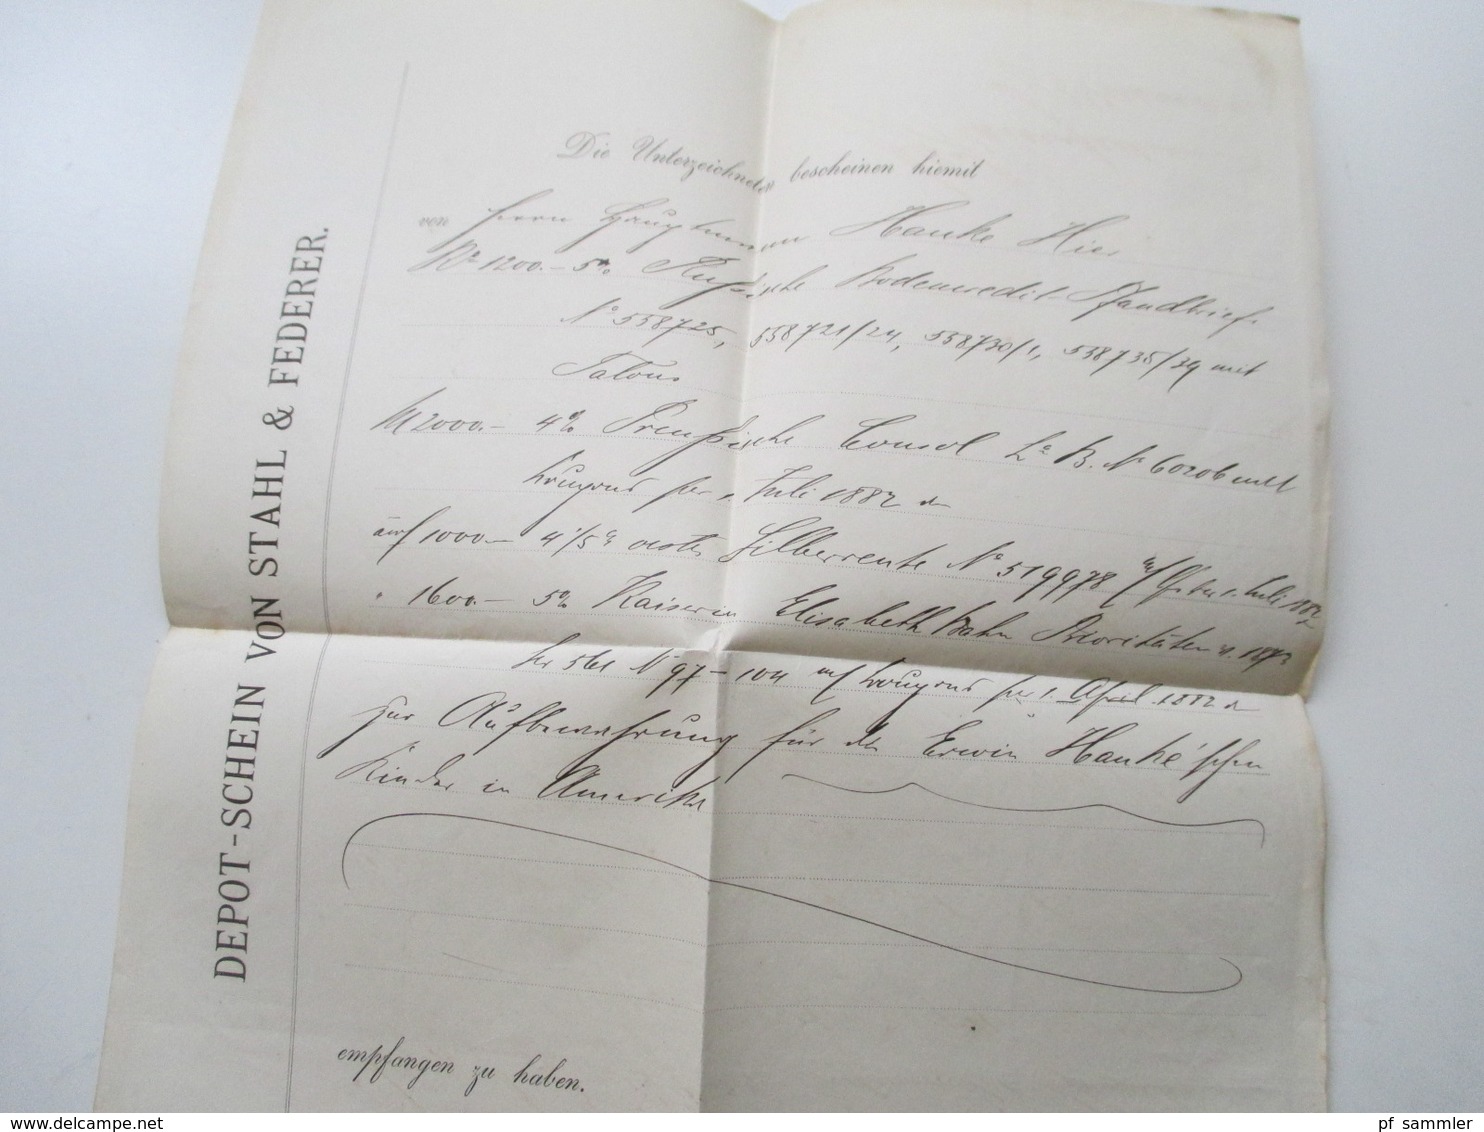 DEPOT-SCHEIN VON STAHL & FEDERER.
Die Unterzeichneten bescheinen hiemit
von Herrn Hauptmann Hanke Hier
R° 1200.– 5% Russische Bodencredit-Pfandbriefe
N° 558725, 558721/24, 558730/1, 558735/39 mit
Talons
M 2000.– 4% Preußische Consol La B. N° 60206 mit
Coupons per 1. Juli 1882 &
auf 1000.– 4 1/5% oestr. Silberrente N° 519978 m/ Cps per 1. Juli 1882
" 1600.– 5% Kaiserin Elisabeth Bahn Prioritäten v. 1873
Ser 561 N° 97–104 m/ Coupons per 1. April 1882 &
zur Aufbewahrung für die Erwin Hanke'schen
Kinder in Amerika
empfangen zu haben.
delcampe.net
pf sammler